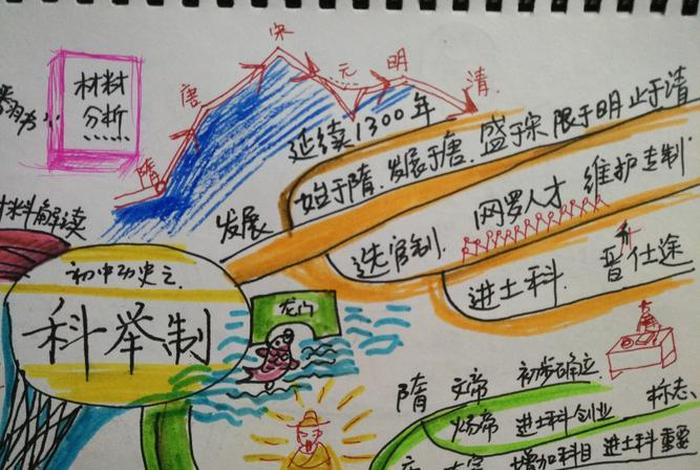 宋
元
明
唐
清
隋
材料
分析
延续1300年
始于隋、发展于唐、盛于宋 限于明 止于清
发展
材料解读
选官制
网罗人才 维护专制
初中历史之
科举制
进士科
晋升仕途
龙门
隋 文帝 初步确立
炀帝 进士科创业 标志、
增加科目 进士科重要